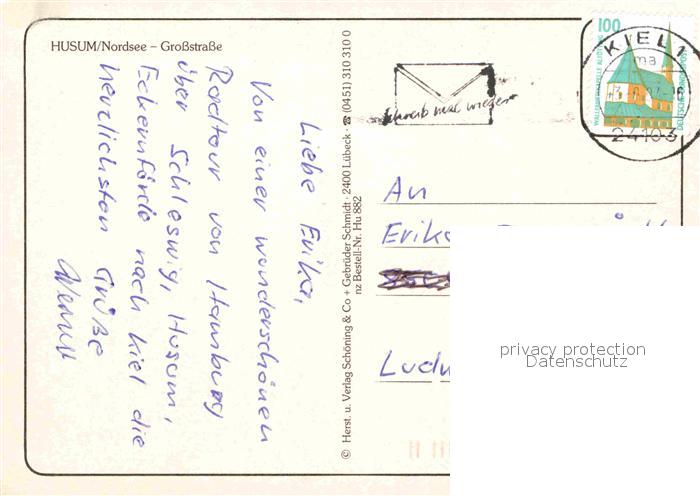 HUSUM/Nordsee – Großstraße
Liebe Erika,
Von einer wunderschönen
Radtour von Hamburg
über Schleswig, Husum,
Eckernförde nach Kiel die
herzlichsten Grüße
© Herst. u. Verlag Schöning & Co + Gebrüder Schmidt · 2400 Lübeck · ☎ (0451) 310 310 0
nz Bestell-Nr. Hu 882
Schreib mal wieder
100
DEUTSCHE BUNDESPOST
KIEL 1
ma
24103
An
Erika
privacy protection
Datenschutz